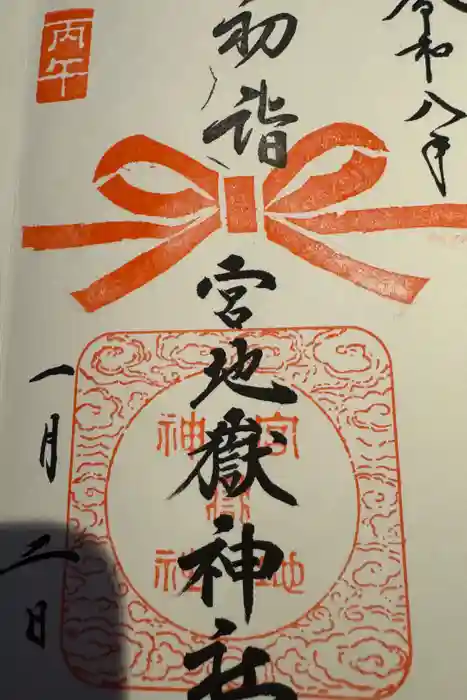 令和八年
初詣
宮地嶽神社
宮地嶽神社
丙午
一月二日